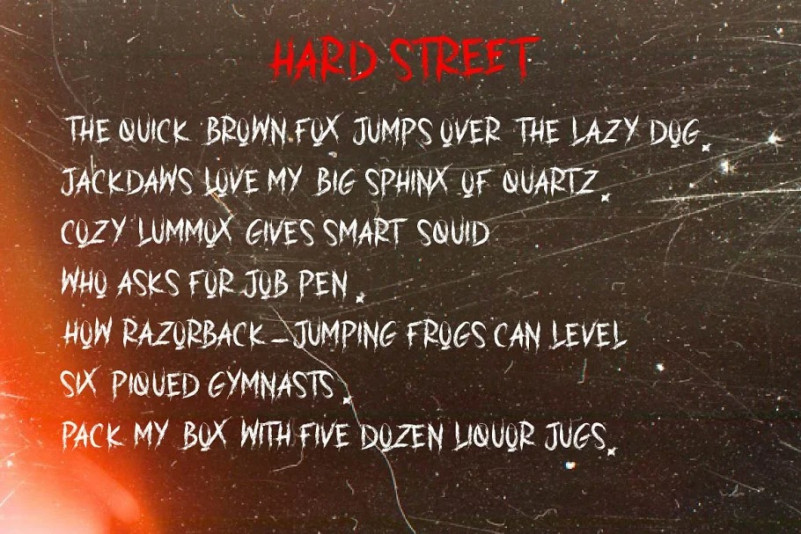 HARD STREET
THE QUICK BROWN FOX JUMPS OVER THE LAZY DOG.
JACKDAWS LOVE MY BIG SPHINX OF QUARTZ.
COZY LUMMOX GIVES SMART SQUID
WHO ASKS FOR JOB PEN.
HOW RAZORBACK-JUMPING FROGS CAN LEVEL
SIX PIQUED GYMNASTS.
PACK MY BOX WITH FIVE DOZEN LIQUOR JUGS.